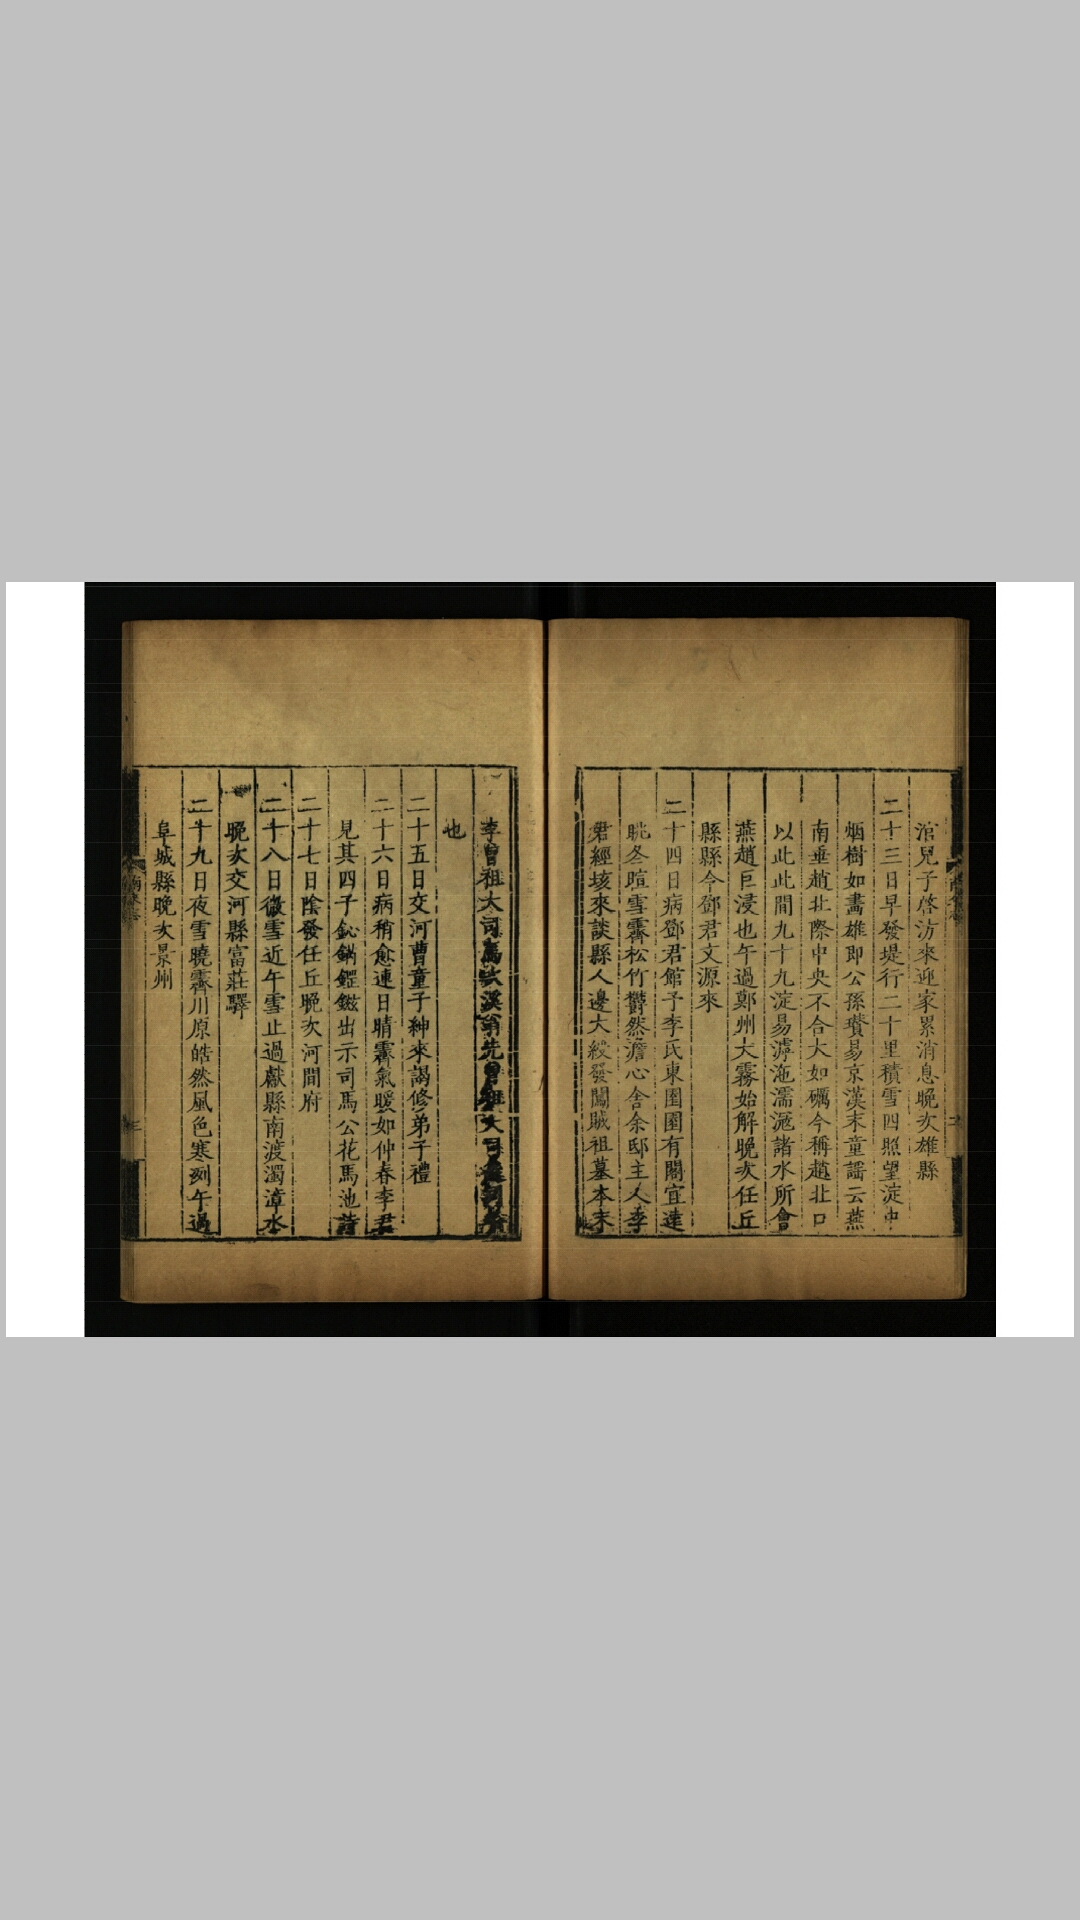 涫兒子啓汸來迎家累消息晚次雄縣
二十三日早發堤行二十里積雪四照望淀中
烟樹如畵雄即公孫瓚易京漢末童謡云燕
南垂趙北際中央不合大如礪今稱趙北口
以此此間九十九淀易滹沲濡滱諸水所會
燕趙巨浸也午過鄭州大霧始解晚次任丘
縣縣令鄧君文源來
二十四日病鄧君館予李氏東園園有閣宜遠
眺冬暄雪霽松竹鬱然澹心舍余邸主人李
君經垓來談縣人邊大綬發闖賊祖墓本末
李曾祖大司馬次溪翁先曾祖大司
也
二十五日交河曹童子紳來謁修弟子禮
二十六日病稍愈連日晴霽氣暖如仲春李君
見其四子鈊鏋鑺鎡出示司馬公花馬池詩
二十七日陰發任丘晚次河間府
二十八日微雪近午雪止過獻縣南渡濁漳水
晚次交河縣富莊驛
二十九日夜雪曉霽川原皓然風色寒冽午過
阜城縣晚次景州